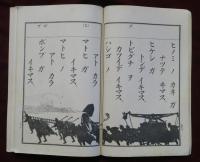 ヒノミ ノ カネ ガ
ナツテ ヰマス。
ヒケシ ガ
トンデ イキマス。
トビグチ ヲ
カツイデ イキマス。
ハシゴ ノ
アト カラ
マトヒ ガ イキマス。
マトヒ ノ
アト カラ
ポンプ ガ イキマス。